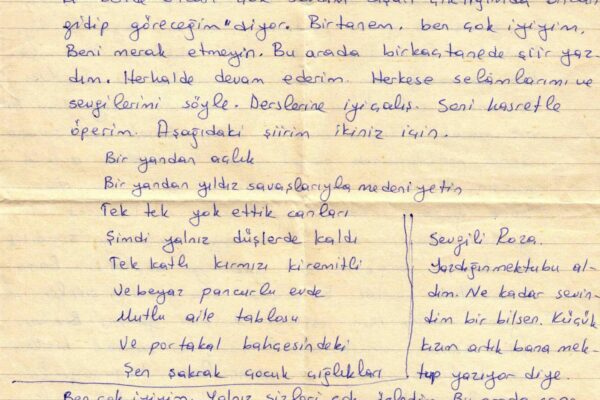 gidip göreceğim" diyor. Birtanem, ben çok iyiyim.
Beni merak etmeyin. Bu arada birkaçtanede şiir yaz-
dım. Herhalde devam ederim. Herkese selâmlarımı ve
sevgilerimi söyle. Derslerine iyi çalış. Seni hasretle
öperim. Aşağıdaki şiirim ikiniz için.
Bir yandan açlık
Bir yandan yıldız savaşlarıyla medeniyetin
Tek tek yok ettik canları
Şimdi yalnız düşlerde kaldı
Tek katlı kırmızı kiremitli
Ve beyaz pancurlu evde
Mutlu aile tablosu
Ve portakal bahçesindeki
Şen şakrak çocuk çığlıkları
Sevgili Roza.
Yazdığın mektubu al-
dım. Ne kadar sevin-
dim bir bilsen. Küçük
kızım artık bana mek-
tup yazıyor diye.
Ben çok iyiyim. Yalnız sizleri çok
Bu arada